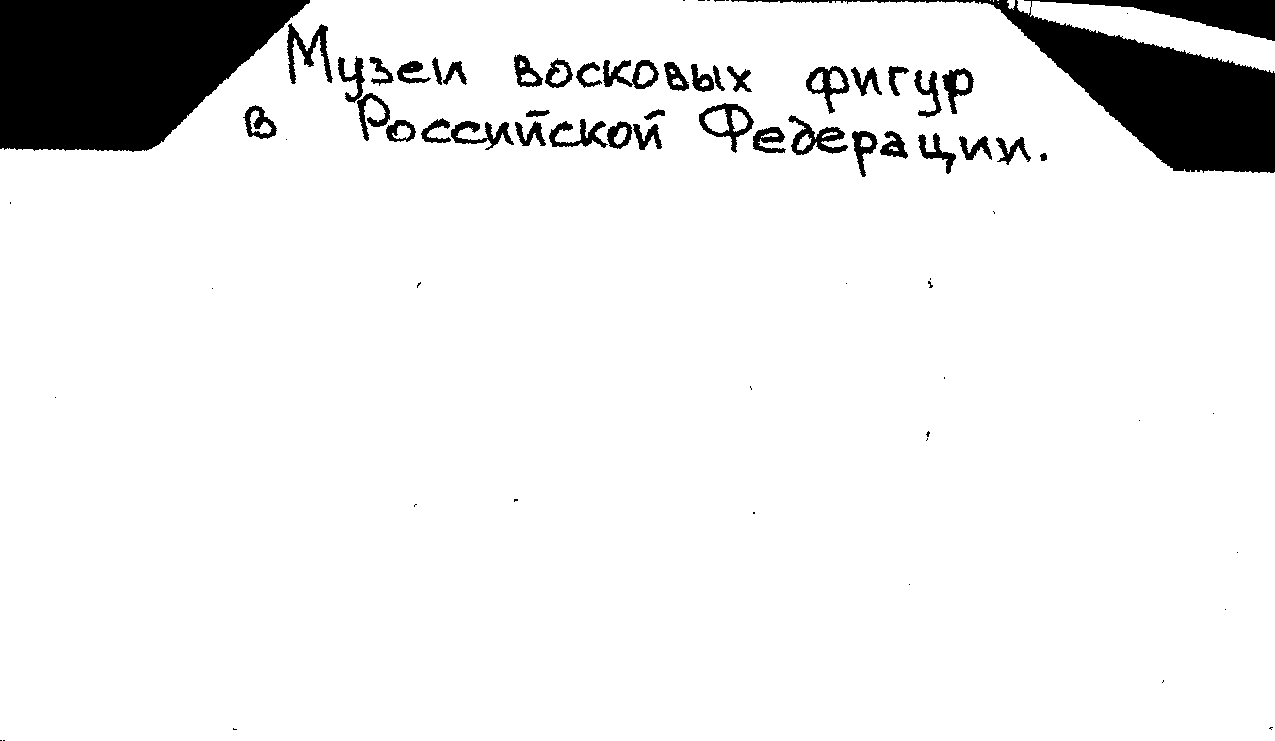 Музеи восковых фигур
в Российской Федерации.